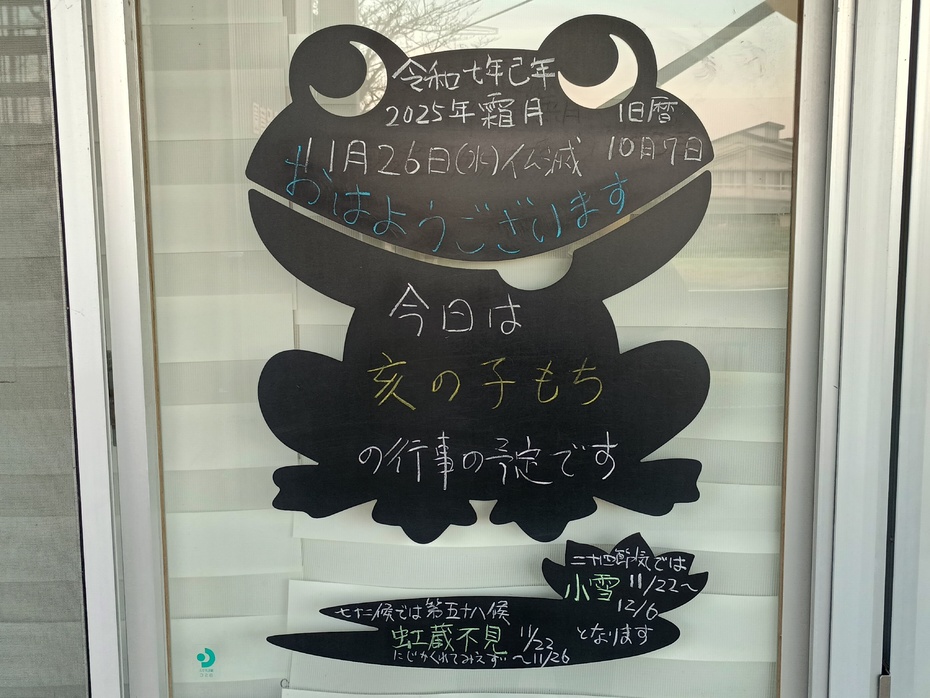 令和七年己年
2025年霜月
旧暦
10月7日
11月26日(水)仏滅
おはようございます
今日は
亥の子もち
の行事の予定です
二十四節気では
小雪 11/22～
12/6
となります
七十二候では第五十八候
虹蔵不見 11/22
にじかくれてみえず ～11/26